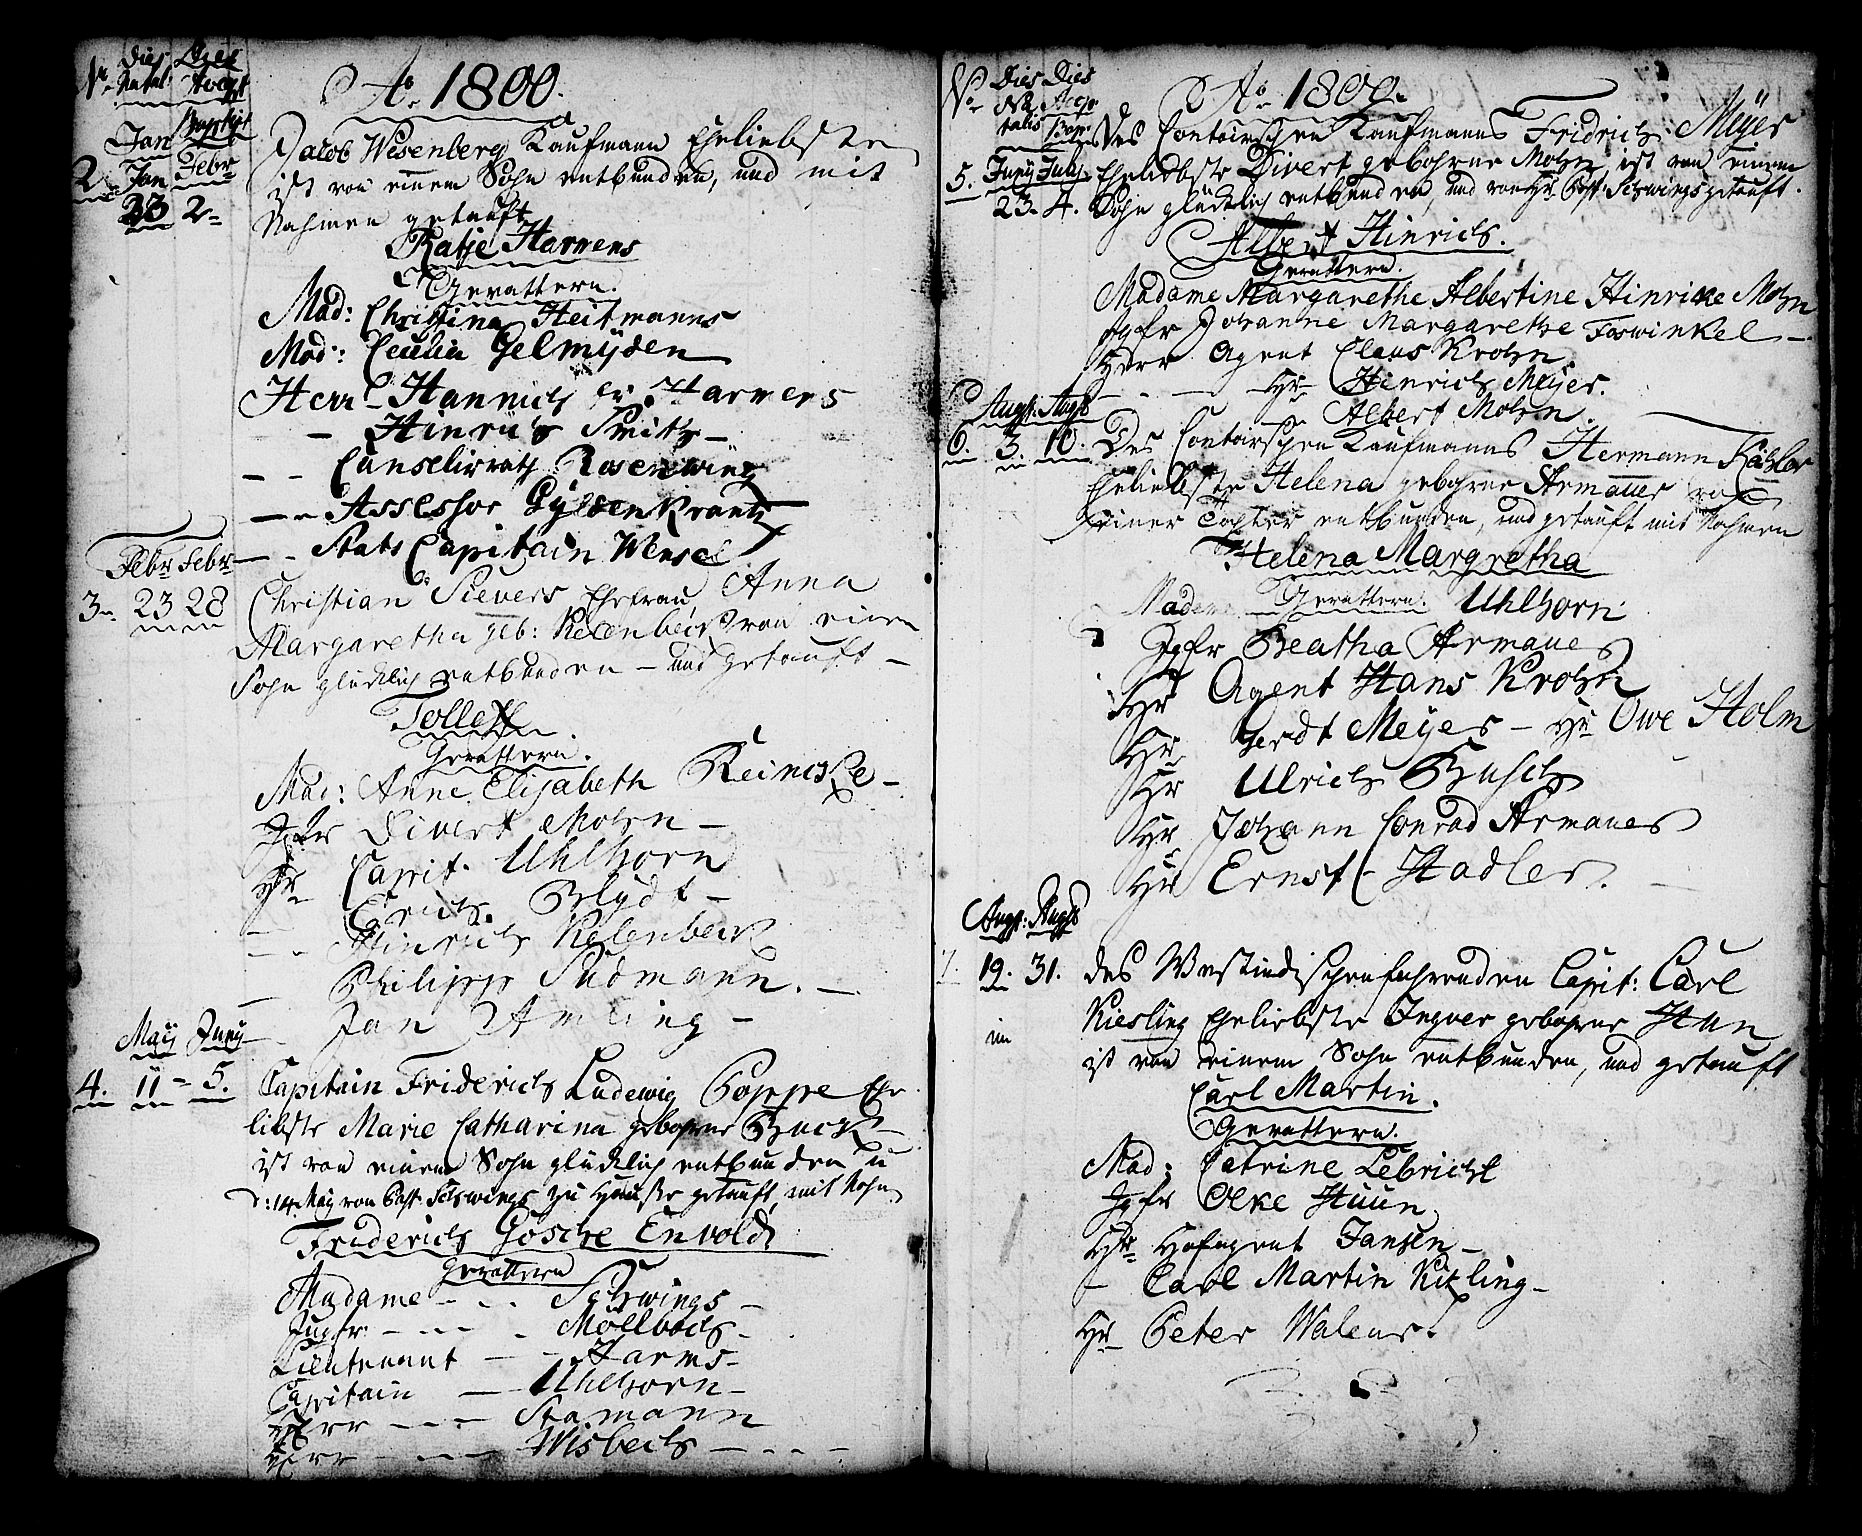 No Dies Dies
Natal: Accept
Baptist
Ao 1800.
Jan
2. Jan Febr
23 2
Jacob Wesenberg Kaufmann Eheliebste
ist von einem Sohn entbunden, und mit
Nahmen getauft
Katje Harmens
Gevattern.
Mad: Christina Heitmanns
Mad: Cecilia Gelmÿden
Herr Hannich Harmens
- Hinrich Smith -
- - Canselirrath Rosenwing
- - Assessor Gÿldenkrantz
- - Stats Capitain Wensel
Febr Febr
3. 23 28
Christian Sievers Ehefrau, Anna
Margaretha geb: Kelenbeck von einen
Sohn glücklich entbunden - und getauft -
Tolleff
Gevattern.
Mad: Anne Elisabeth Reincke -
Jgfr Divert Mohn -
Hr Capit. Uhlhorn
Erich. Blydt -
- - Hinrich Kelenbeck
- Philipp Sudmann. -
Jan Amling -
Maÿ Junÿ
4. 11 - 5.
Capitain Friderich Ludewig Poppe Ehe
liebste Marie Catharina gebohrne Buck -
ist von einem Sohn glücklich entbunden u
d: 14 Maÿ von Past Schwings zu Hause getauft, mit Nahm
Friderich Gosche Enwold
Gevattern
Madame - - - Schwings -
Jugfr: - - - Möllbach -
Lieutenant - - Harms -
Capitain - - Uhlhorn -
Herr - - - Stamann
Herr - - - Wisbech - - -
No Dies Dies
Na Accp
talis Bap
Ao 1800.
5. Junÿ Julÿ
23. 4.
Des Contoirschen Kaufmanns Fridrich Meÿer
Eheliebste Divert gebohrne Mohn ist von einem
Sohn glücklich entbunden, und von Hr Past: Schwings getauft.
Albert Hinrich.
Gevattern.
Madame Margarethe Albertine Hinrike Mohn
Jgfr Johanne Margarethe Foswinkel -
Herr Agent Claus Krohn
- - - Hr Hinrich Meÿer.
Albert Mohn.
Augst: Augst
6. 3. 10.
Des Contoirschen Kaufmanns Hermann Kähler
Eheliebste Helena gebohrne Armauer von
einer Tochter entbunden, und getauft mit Nahmen
Helena Margretha
Gevattern.
Madem Uhlhorn
Jgfr Beatha Armauer
Hr Agent Hans Krohn
Hr Gerdt Meÿer - Hr Owe Holm
Hr Ulrich Busch
Hr Johann Conrad Armauer
Hr Ernst Stadler.
Augst: Augst
7. 19. 31.
Des Westindischenfahrenden Capit: Carl
Kiesling Eheliebste Ingver gebohrne Hun
ist von einem Sohn entbunden, und getauft
Carl Martin.
Gevattern.
Mad: Catrine Lebricht
Jgfr Olke Huun
Hr Hofagent Jansen -
- Carl Martin Kisling -
Hr Peter Walens.